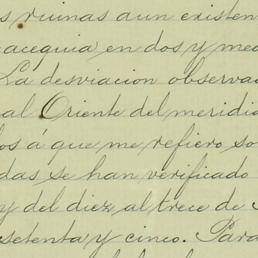 s ruinas aun existen
acequia en dos y med
La desviacion observad
al Oriente del meridia
los á que me refiero so
das se han verificado
y del diez al trece de
setenta y cinco. Para